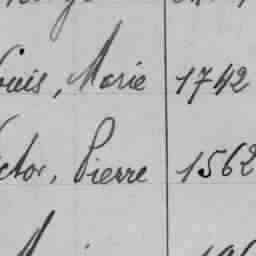 ouis, Marie 1742
ctor, Pierre 1562